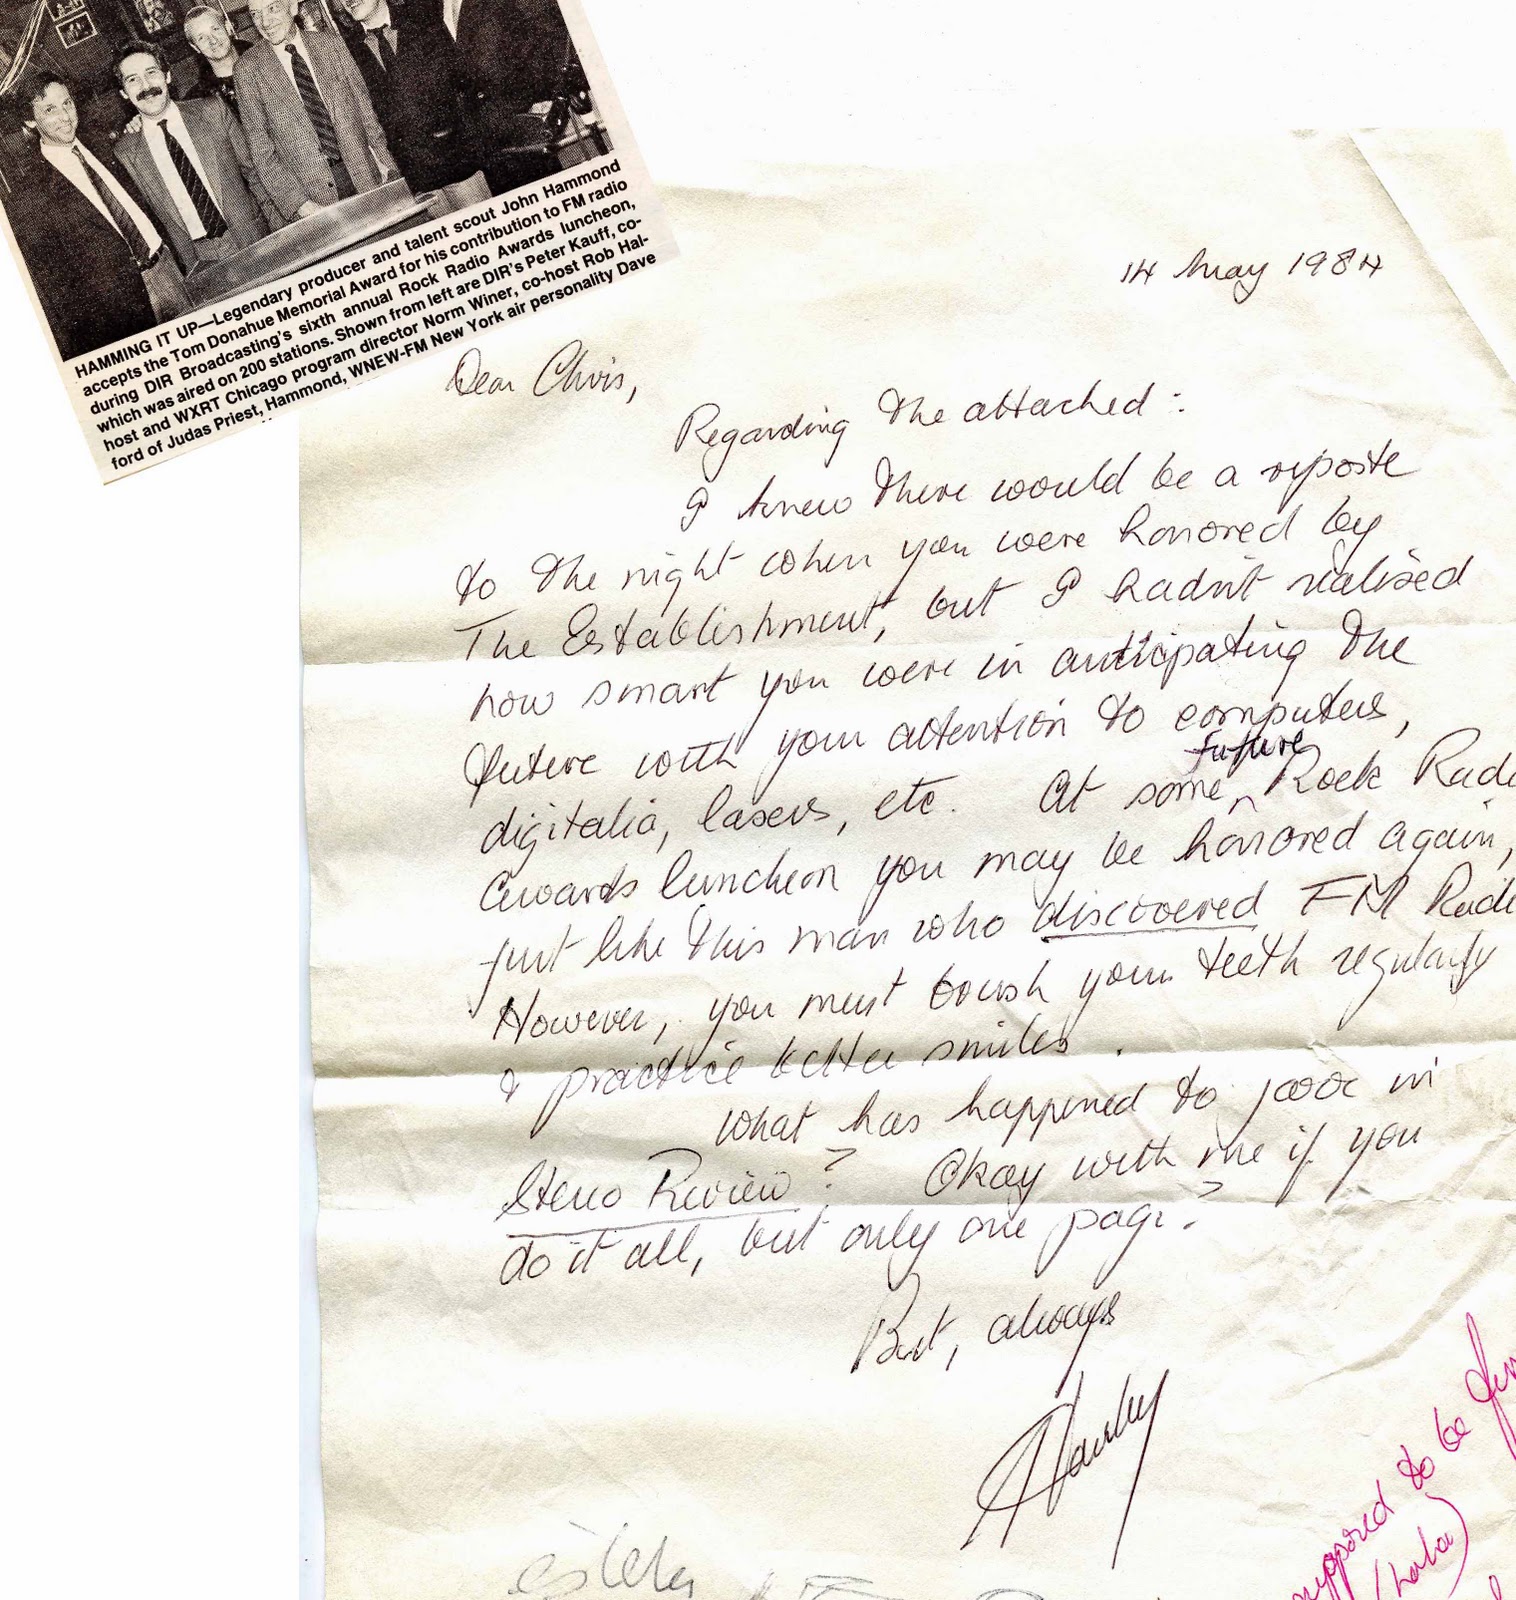 HAMMING IT UP—Legendary producer and talent scout John Hammond
accepts the Tom Donahue Memorial Award for his contribution to FM radio
during DIR Broadcasting's sixth annual Rock Radio Awards luncheon,
which was aired on 200 stations. Shown from left are DIR's Peter Kauff, co-
host and WXRT Chicago program director Norm Winer, co-host Rob Hal-
ford of Judas Priest, Hammond, WNEW-FM New York air personality Dave
14 May 1984
Dear Chris,
Regarding the attached:
I knew there would be a riposte
to the night when you were honored by
The Establishment, but I hadn't realised
how smart you were in anticipating the
future with your attention to computers,
digitalia, lasers, etc. At some future Rock Radi
Awards luncheon you may be honored again,
just like this man who discovered FM Radi
However, you must brush your teeth regularly
& practice better smiles.
What has happened to jazz in
Stereo Review? Okay with me if you
do it all, but only one page?
Best, always
Stanley
supposed to be
(haha)